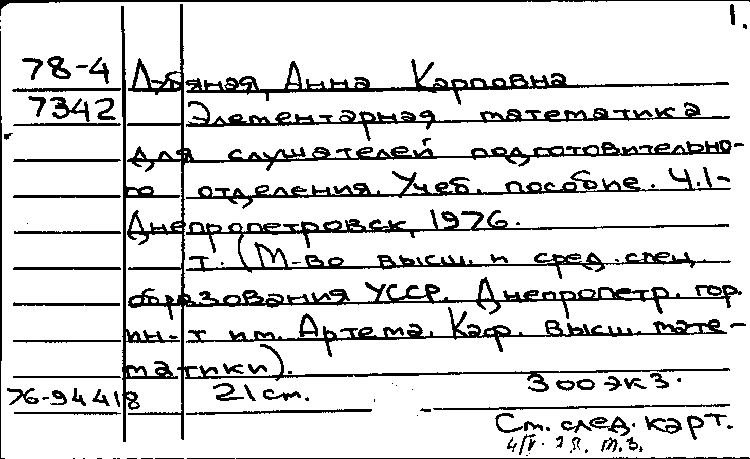 1.
78-4 Лубяная, Анна Карповна
7342 Элементарная математика
для слушателей подготовительно-
го отделения. Учеб. пособие. Ч.1-
Днепропетровск, 1976.
т. (М-во высш. и сред. спец.
образования УССР. Днепропетр. гор.
ин-т им. Артема. Каф. высш. мате-
матики).
76-94418 21 см. 300 экз.
См. след. карт.